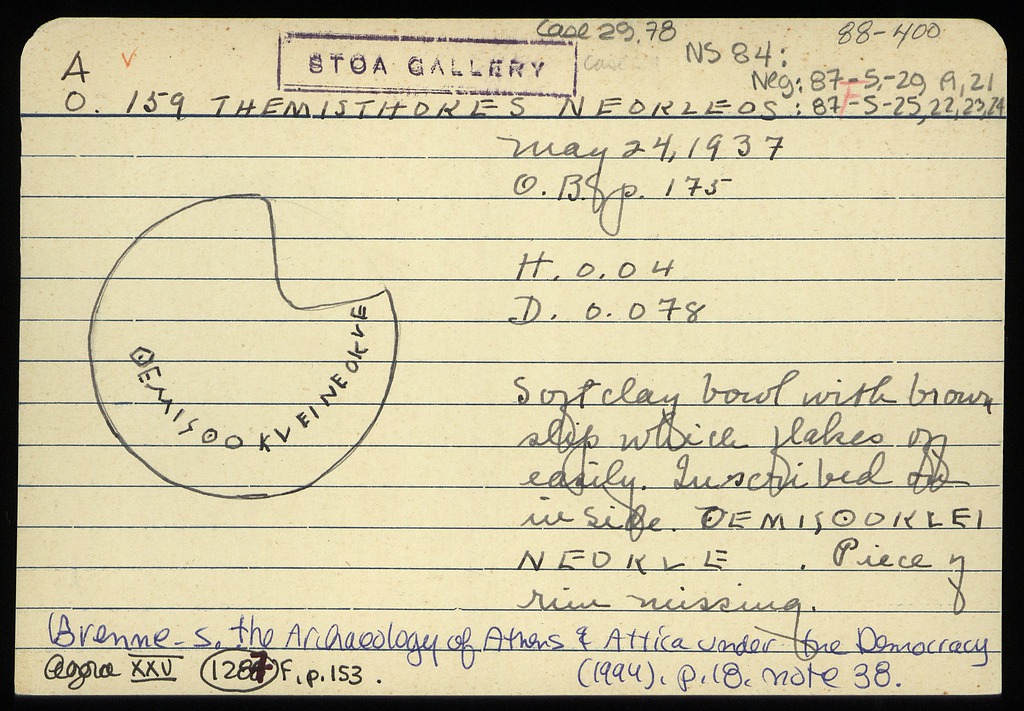 Case 29, 78
88-400
A v
STOA GALLERY
NS 84:
Neg: 87-S-20, 19, 21
O. 159 THEMISTHOKES NEOKLEOS : 87-S-25, 22, 23, 24
May 24, 1937
O.B. p. 175
H. 0.04
D. 0.078
ΘEMISΘOKLEINEOKLE
Soft clay bowl with brown
slip which flakes off
easily. Inscribed on
inside. ΘEMISΘOKLEI
NEOKLE . Piece of
rim missing.
Brenne S. the Archaeology of Athens & Attica under the Democracy
(1994). p. 18. note 38.
Agora XXV 1287 F. p. 153.